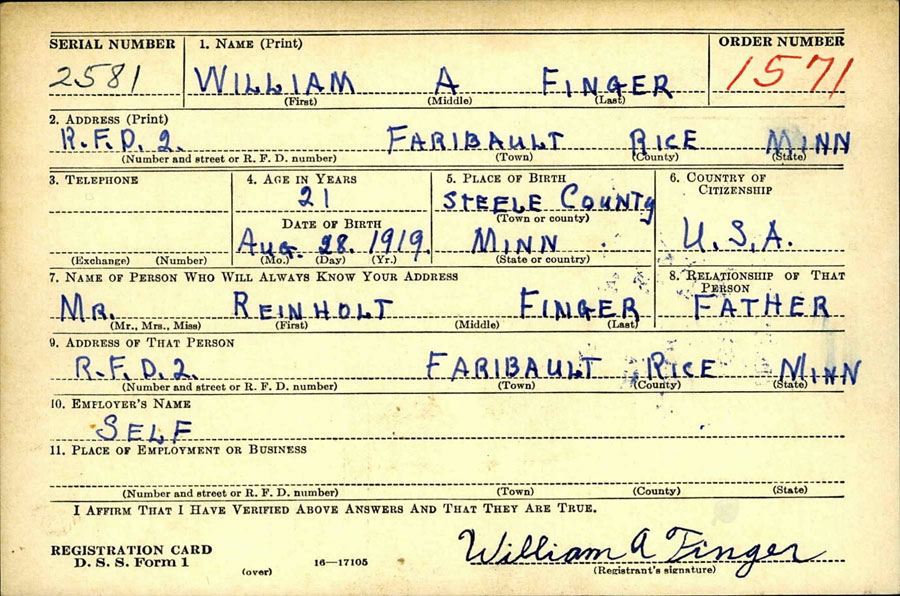 SERIAL NUMBER 1. NAME (Print) ORDER NUMBER
2581 WILLIAM A FINGER 1571
(First) (Middle) (Last)
2. ADDRESS (Print)
R.F.D. 2. FARIBAULT RICE MINN
(Number and street or R. F. D. number) (Town) (County) (State)
3. TELEPHONE 4. AGE IN YEARS 5. PLACE OF BIRTH 6. COUNTRY OF CITIZENSHIP
21 STEELE COUNTY
(Town or county)
DATE OF BIRTH
AUG. 28. 1919. MINN U.S.A.
(Exchange) (Number) (Mo.) (Day) (Yr.) (State or country)
7. NAME OF PERSON WHO WILL ALWAYS KNOW YOUR ADDRESS 8. RELATIONSHIP OF THAT PERSON
MR. REINHOLT FINGER FATHER
(Mr., Mrs., Miss) (First) (Middle) (Last)
9. ADDRESS OF THAT PERSON
R.F.D. 2. FARIBAULT RICE MINN
(Number and street or R. F. D. number) (Town) (County) (State)
10. EMPLOYER'S NAME
SELF
11. PLACE OF EMPLOYMENT OR BUSINESS
(Number and street or R. F. D. number) (Town) (County) (State)
I AFFIRM THAT I HAVE VERIFIED ABOVE ANSWERS AND THAT THEY ARE TRUE.
REGISTRATION CARD William A Finger
D. S. S. Form 1 (over) 16—17105 (Registrant's signature)